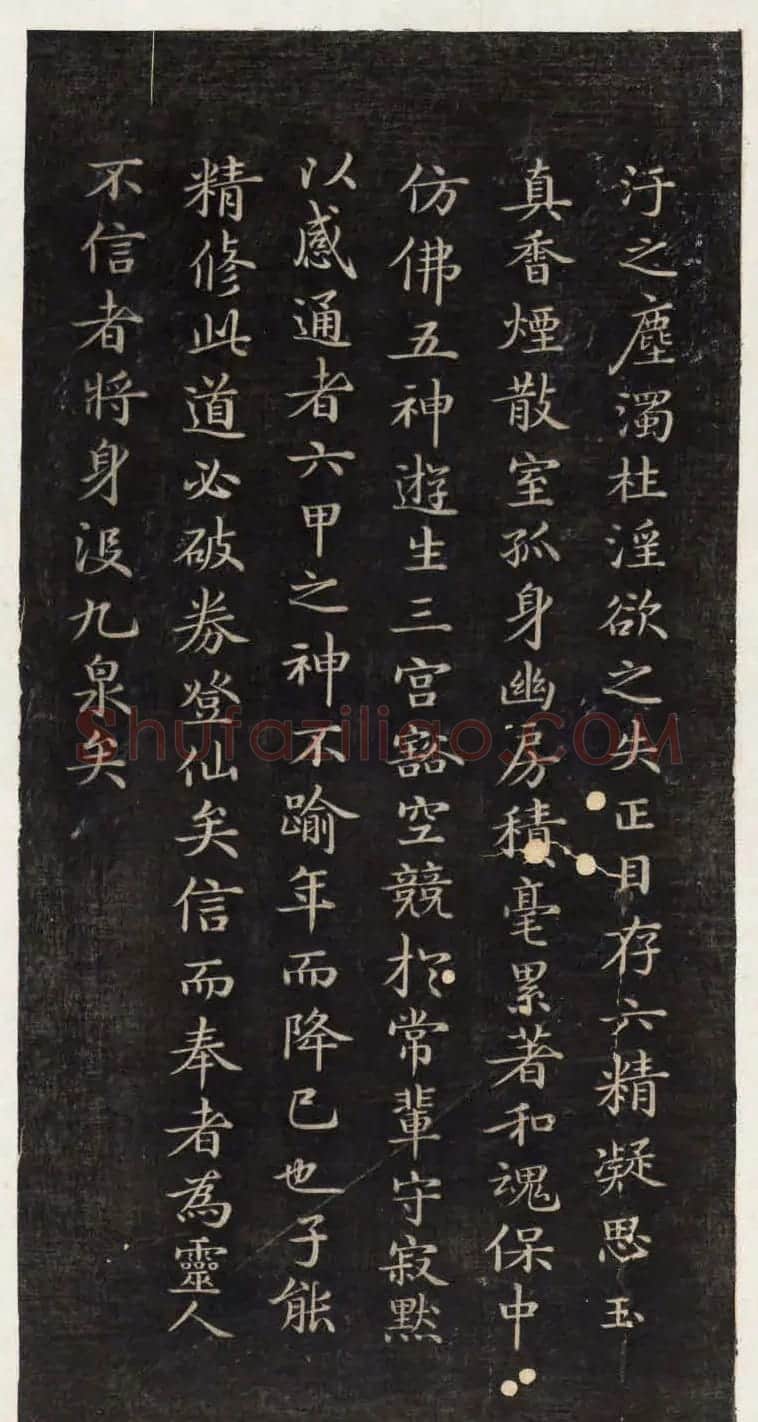 汙之塵濁柱淫欲之失正目存六精凝思玉
真香煙散室孤身幽房積毫累著和魂保中
仿佛五神遊生三宮豁空競於常輩守寂默
以感通者六甲之神不踰年而降已也子能
精修此道必破券登仙矣信而奉者為靈人
不信者將身沒九泉矣
Shufaziliao.COM